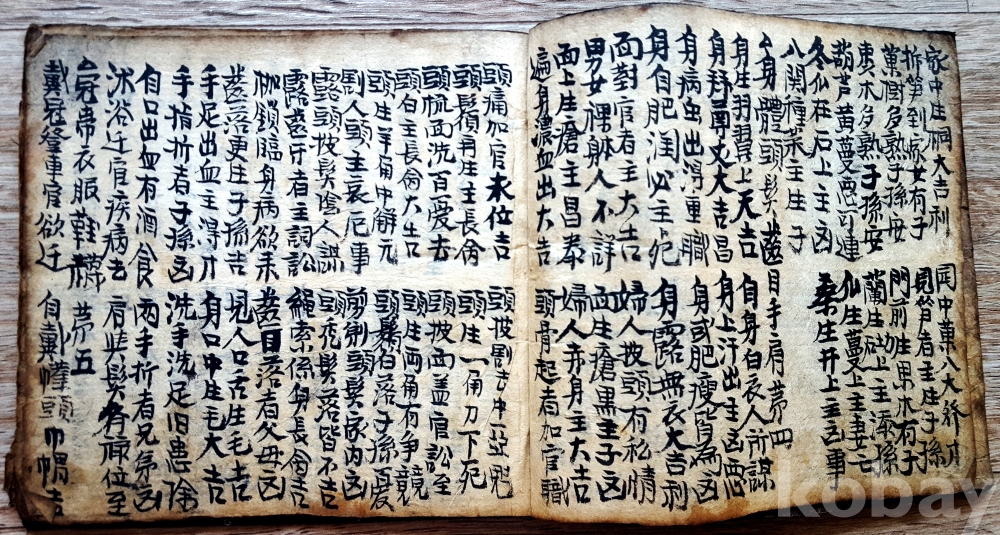 家中生桐大吉利 園中菓大有
折笋到家女有子 見竹者主庄子孫
菓樹多熟子孫安 門前幼生果木有子
棗木多熟子孫安 蘭生庭上主添孫
葫芦黃蔓悪可連 仙生蔓上主妻亡
冬仙在石上主凶 桑庄井上主凶事
八関種菜主生子
身體頭髮齒 目手肩第四
身生羽翼上天吉 自身白衣人所謀
身拜尊丈大吉昌 身上汗出主凶悪
身病虫出得重職 身或肥瘦皆為凶
身自肥潤必主死 身露無衣大吉利
面對官者主大吉 婦人披頭有私情
男女裸躰人不詳 面生瘡黑主子凶
面上生瘡主昌泰 婦人赤身主大吉
遍身濃血出大吉 頭骨起者加官職
頭痛加官末位吉 頭披割去中
頭鬚再生主長命 頭生一角刀下死
頭梳面洗百憂去 頭披面盖官訟至
頭白主長命大吉 頭生両角有争競
頭生羊角中解元 頭髮白落子孫憂
割人頭主哀厄事 剪剃頭髮家內凶
露頭披髮陰人謀 頭禿髮落皆不吉
露汗者主詞訟 繩索係身長命吉
枷鎖臨身病欲来 齒目落者父母凶
齒落更庄子孫吉 見人口舌生毛吉
手足出血主得才 身口中生毛大吉
手指折者子孫凶 洗手洗足旧患除
自口出血有酒食 両手折者兄弟凶
沐浴迁官疾病去 肩髮有禄位至
冠帶衣服鞋襪 第五
戴冠登車官欲迁 自戴幞頭巾帽吉
kobay